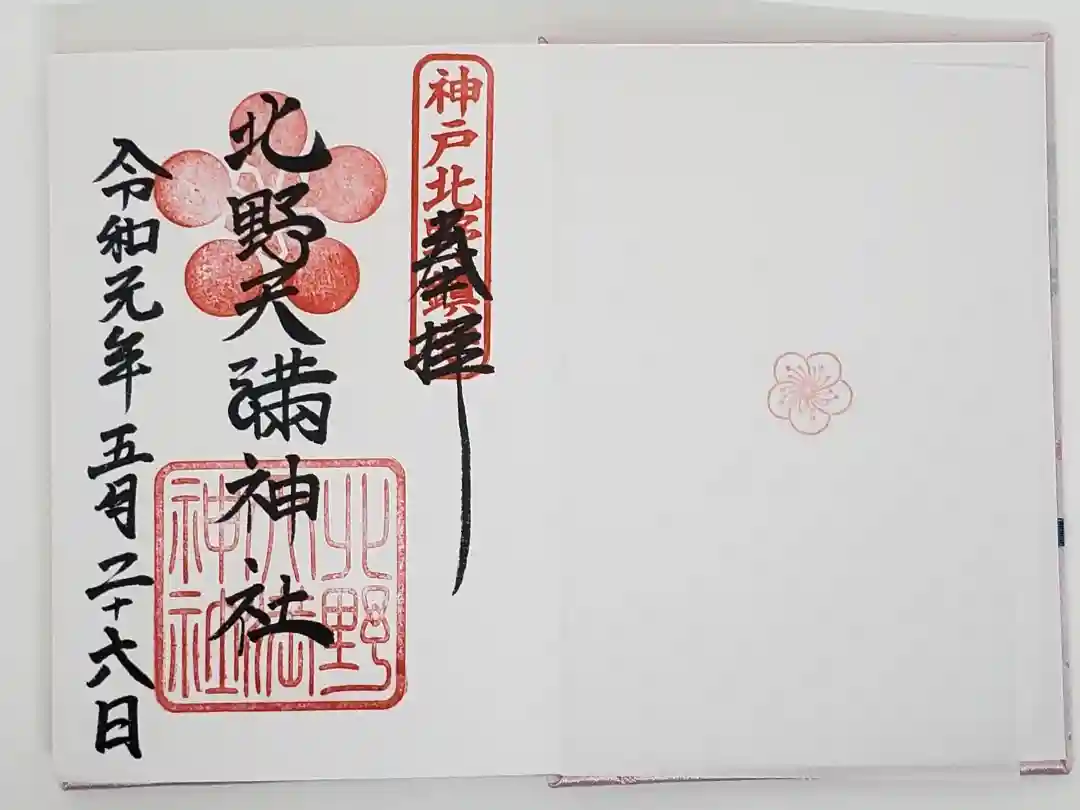 神戸北野鎮
奉拝
北野天満神社
北野
天満
神社
令和元年五月二十六日